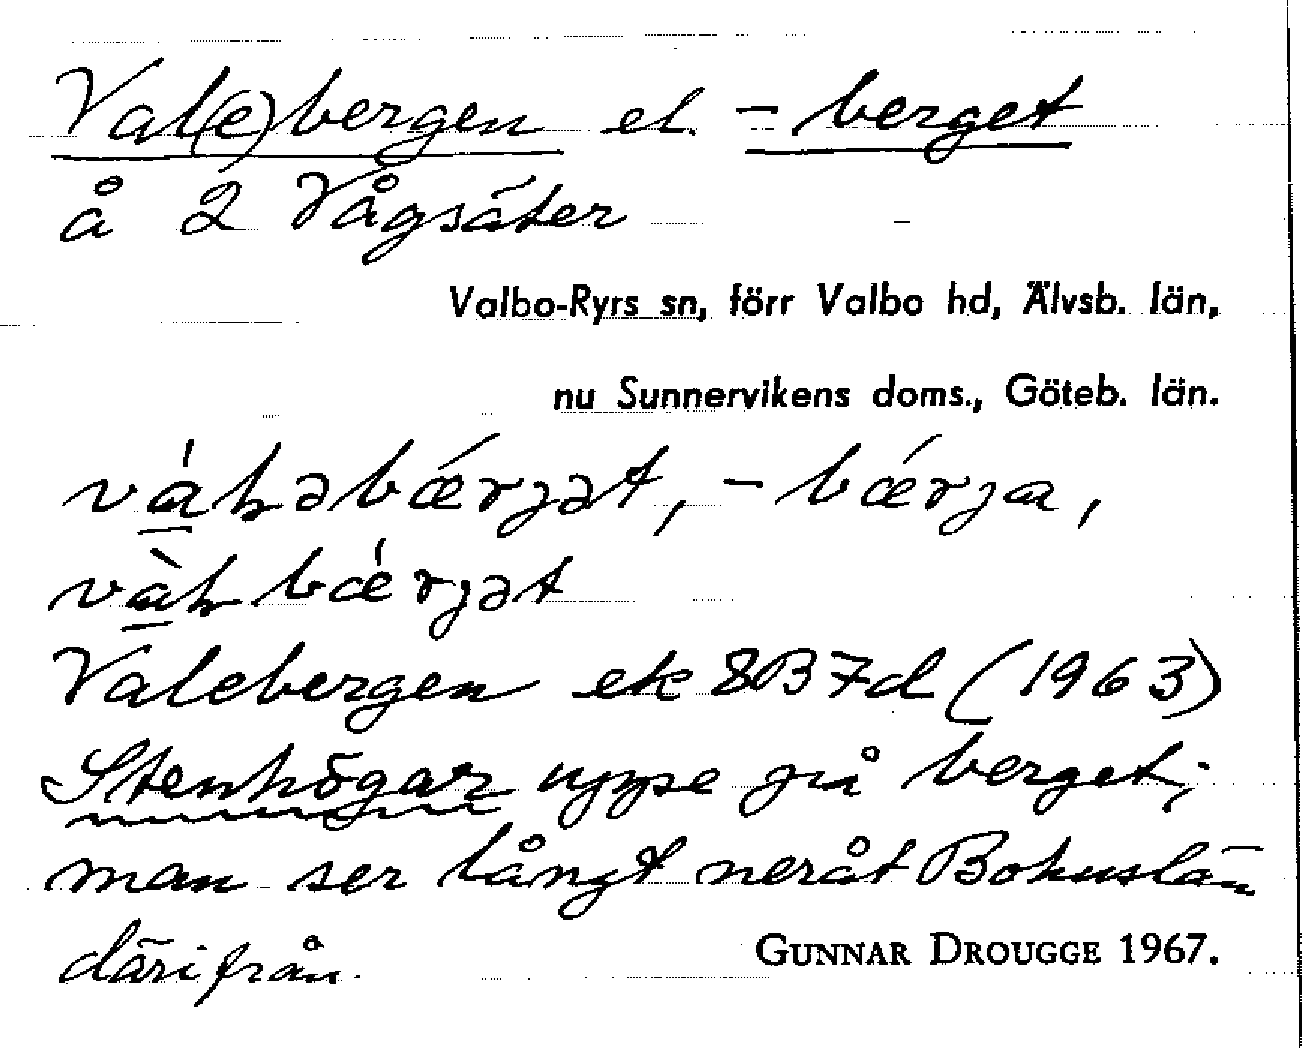 Val(e)bergen el. -berget
å 2 Vågsäter
Valbo-Ryrs sn, förr Valbo hd, Älvsb. län,
nu Sunnervikens doms., Göteb. län.
-bǽrja,
Valebergen ek 8B7d (1963)
Stenhögar uppe på berget;
man ser långt neråt Bohuslän
därifrån.
GUNNAR DROUGGE 1967.